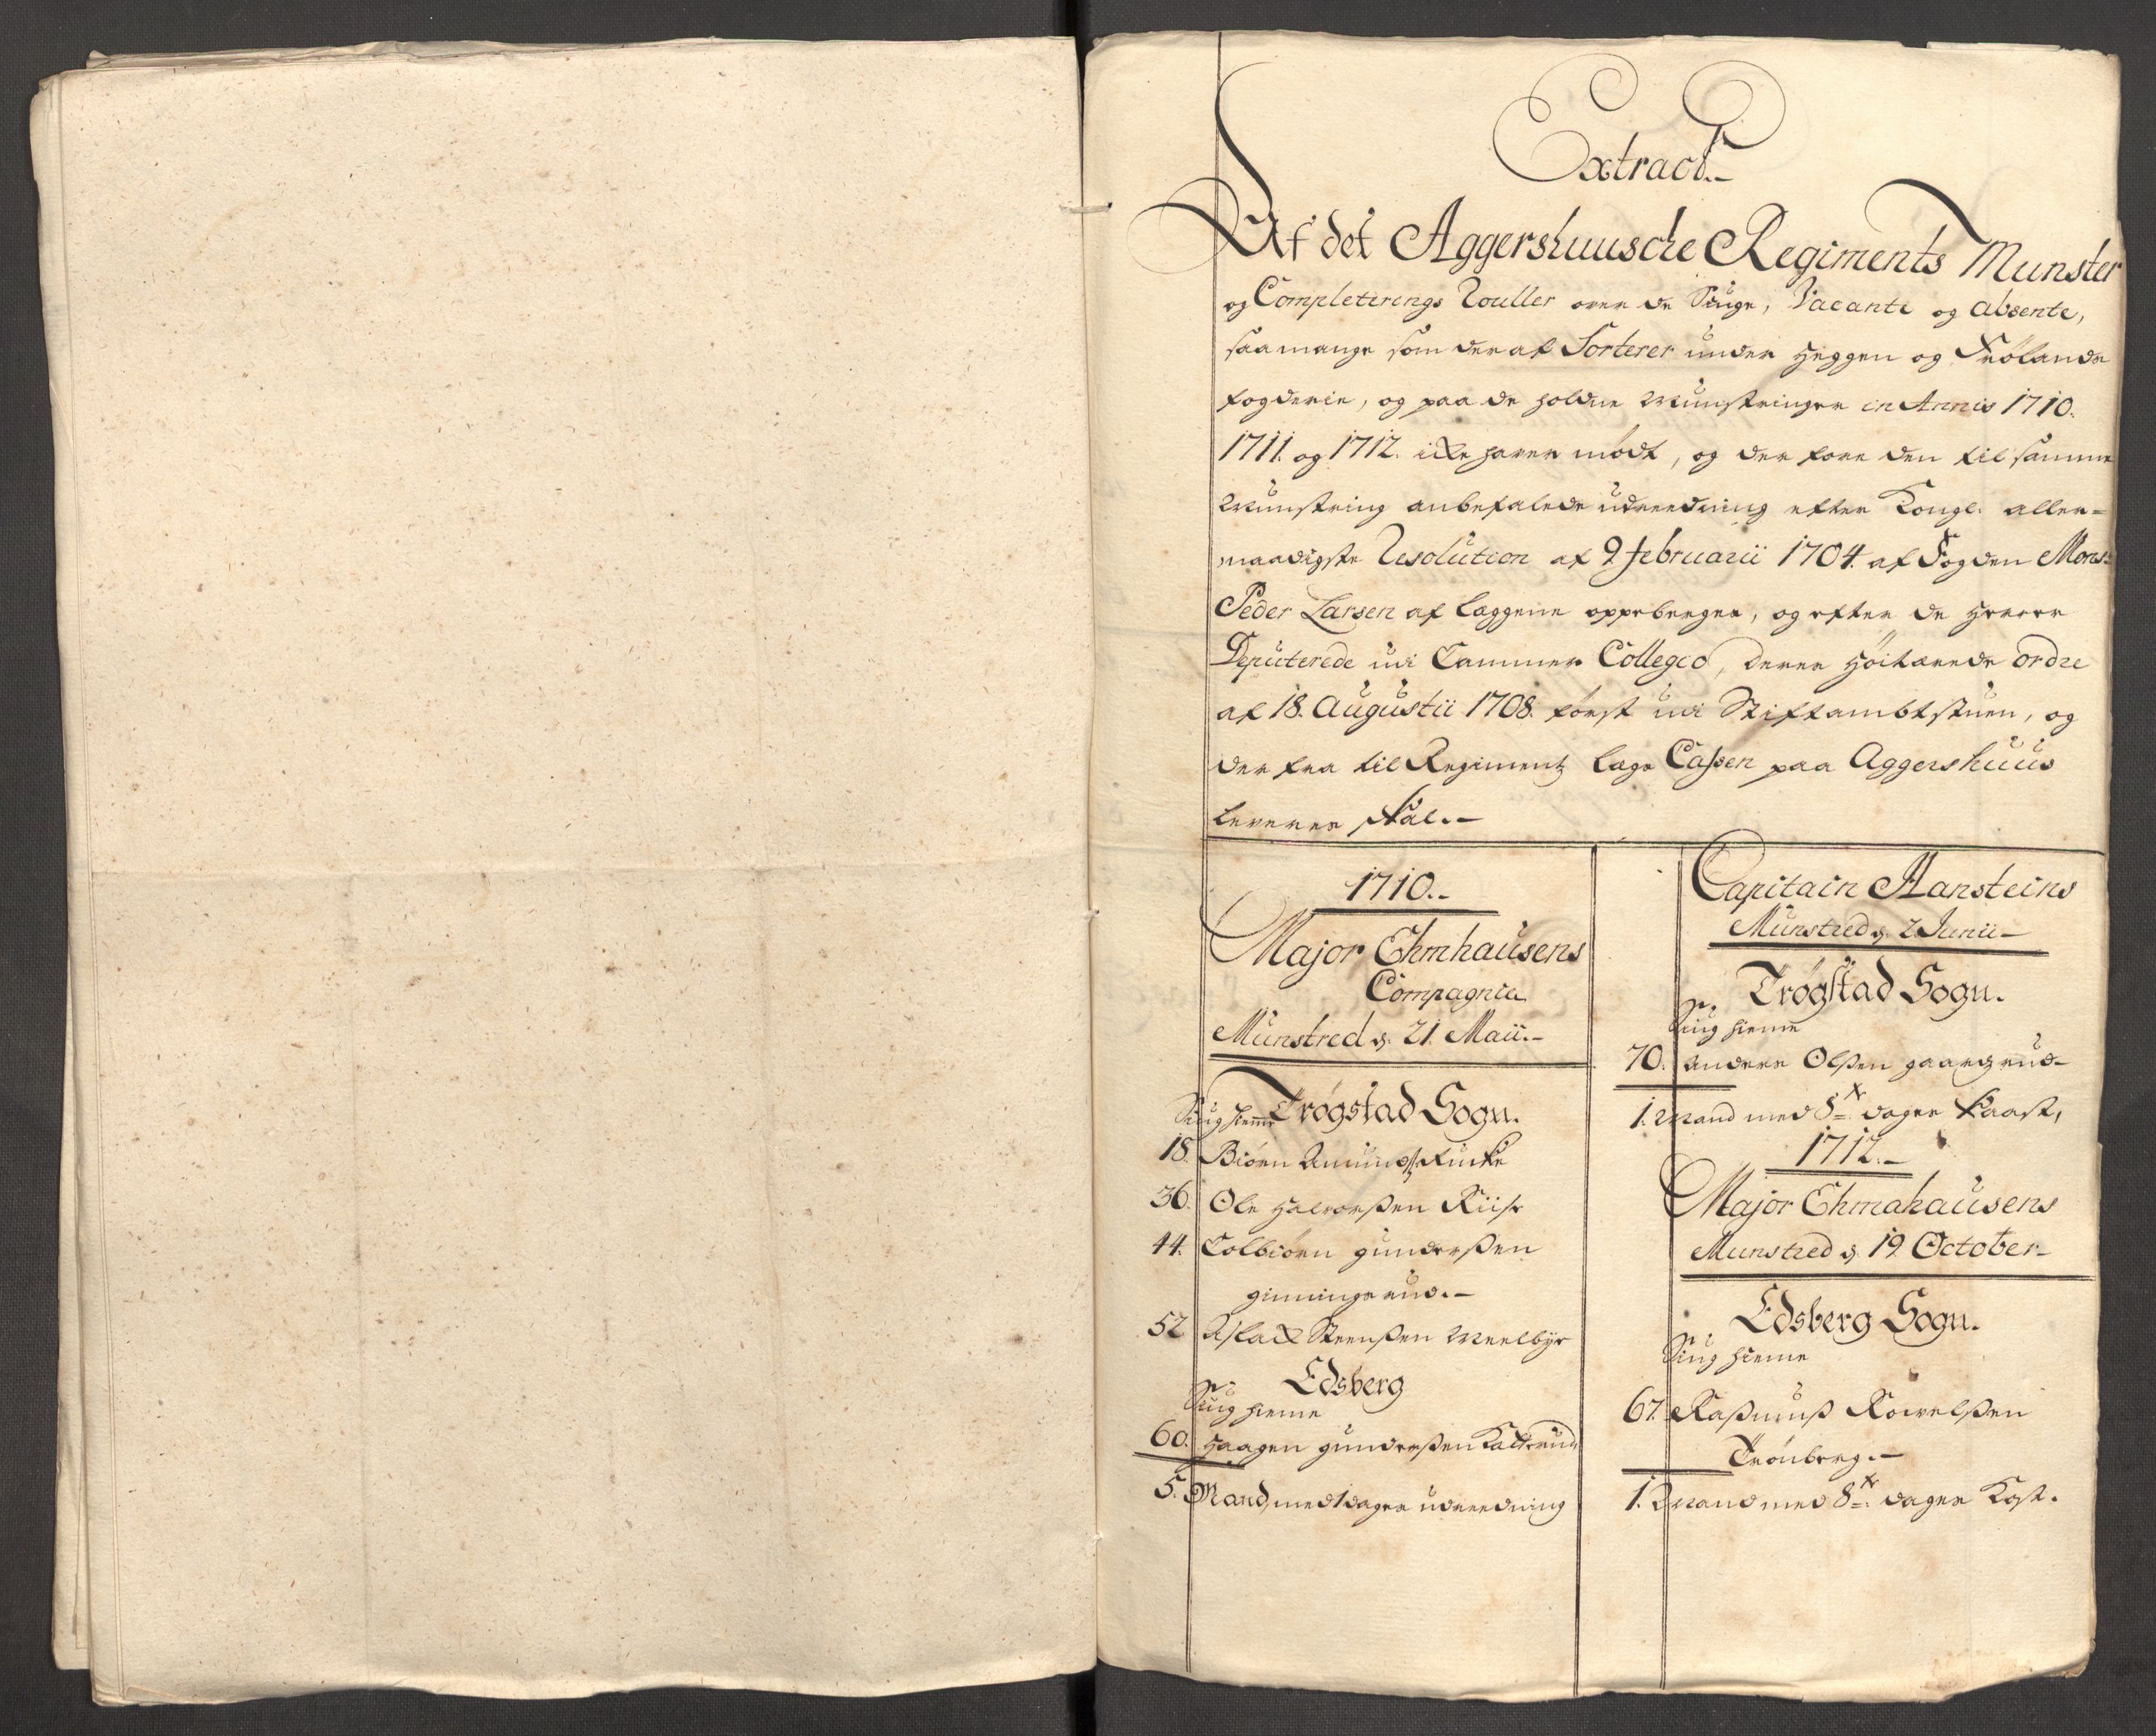 Extract.
Af det Aggershuusche Regiments Munster
og Completerings Roller over de Siuge, Vacante og absente,
saa mange som deraf Sorterer under Heggen og Frølands
fogderie, og paa de holdne Munstringer in Annis 1710.
1711. og 1712. icke haver mødt, og der fore den til samme
Munstring anbefalede udreedning efter Kongl. aller-
naadigste Resolution af 9 februarii 1704. af Fogden Mons:
Peder Larsen af Læggene oppeberges, og efter de Herrer
Deputerede udi Cammer Collegio, deres Høitærede ordre
af 18. Augustii 1708. først udi Stiftambtstuen, og
der fra til Regimentz Lage Cassen paa Aggershuus
leveres skal.-
1710.-
Major Ehmhausens
Compagnie
Munstred d. 21. Maii.-
Trøgstad Sogn.
Siug hiemme
18. Biørn Amunds
36. Ole Halvorsen Riise
44. Colbiørn gundersen
ginningsrud.-
52 Aslack Steensen
Edsberg
Siug hieme
60. Haagen gundersen
5. Mand, med dages udreedning
Capitain Hansteins
Munstred d. 2 Junii-
Trøgstad Sogn.
Siug hieme
70. Anders Olsen gaarsrud-
1. Mand med 8te dages Kaast,
1712.-
Major Ehmahausens
Munstred d. 19 October-
Edsberg Sogn.
Siug hieme
67. Rasmus
Trønberg.-
1. Mand med 8te dages Kost.